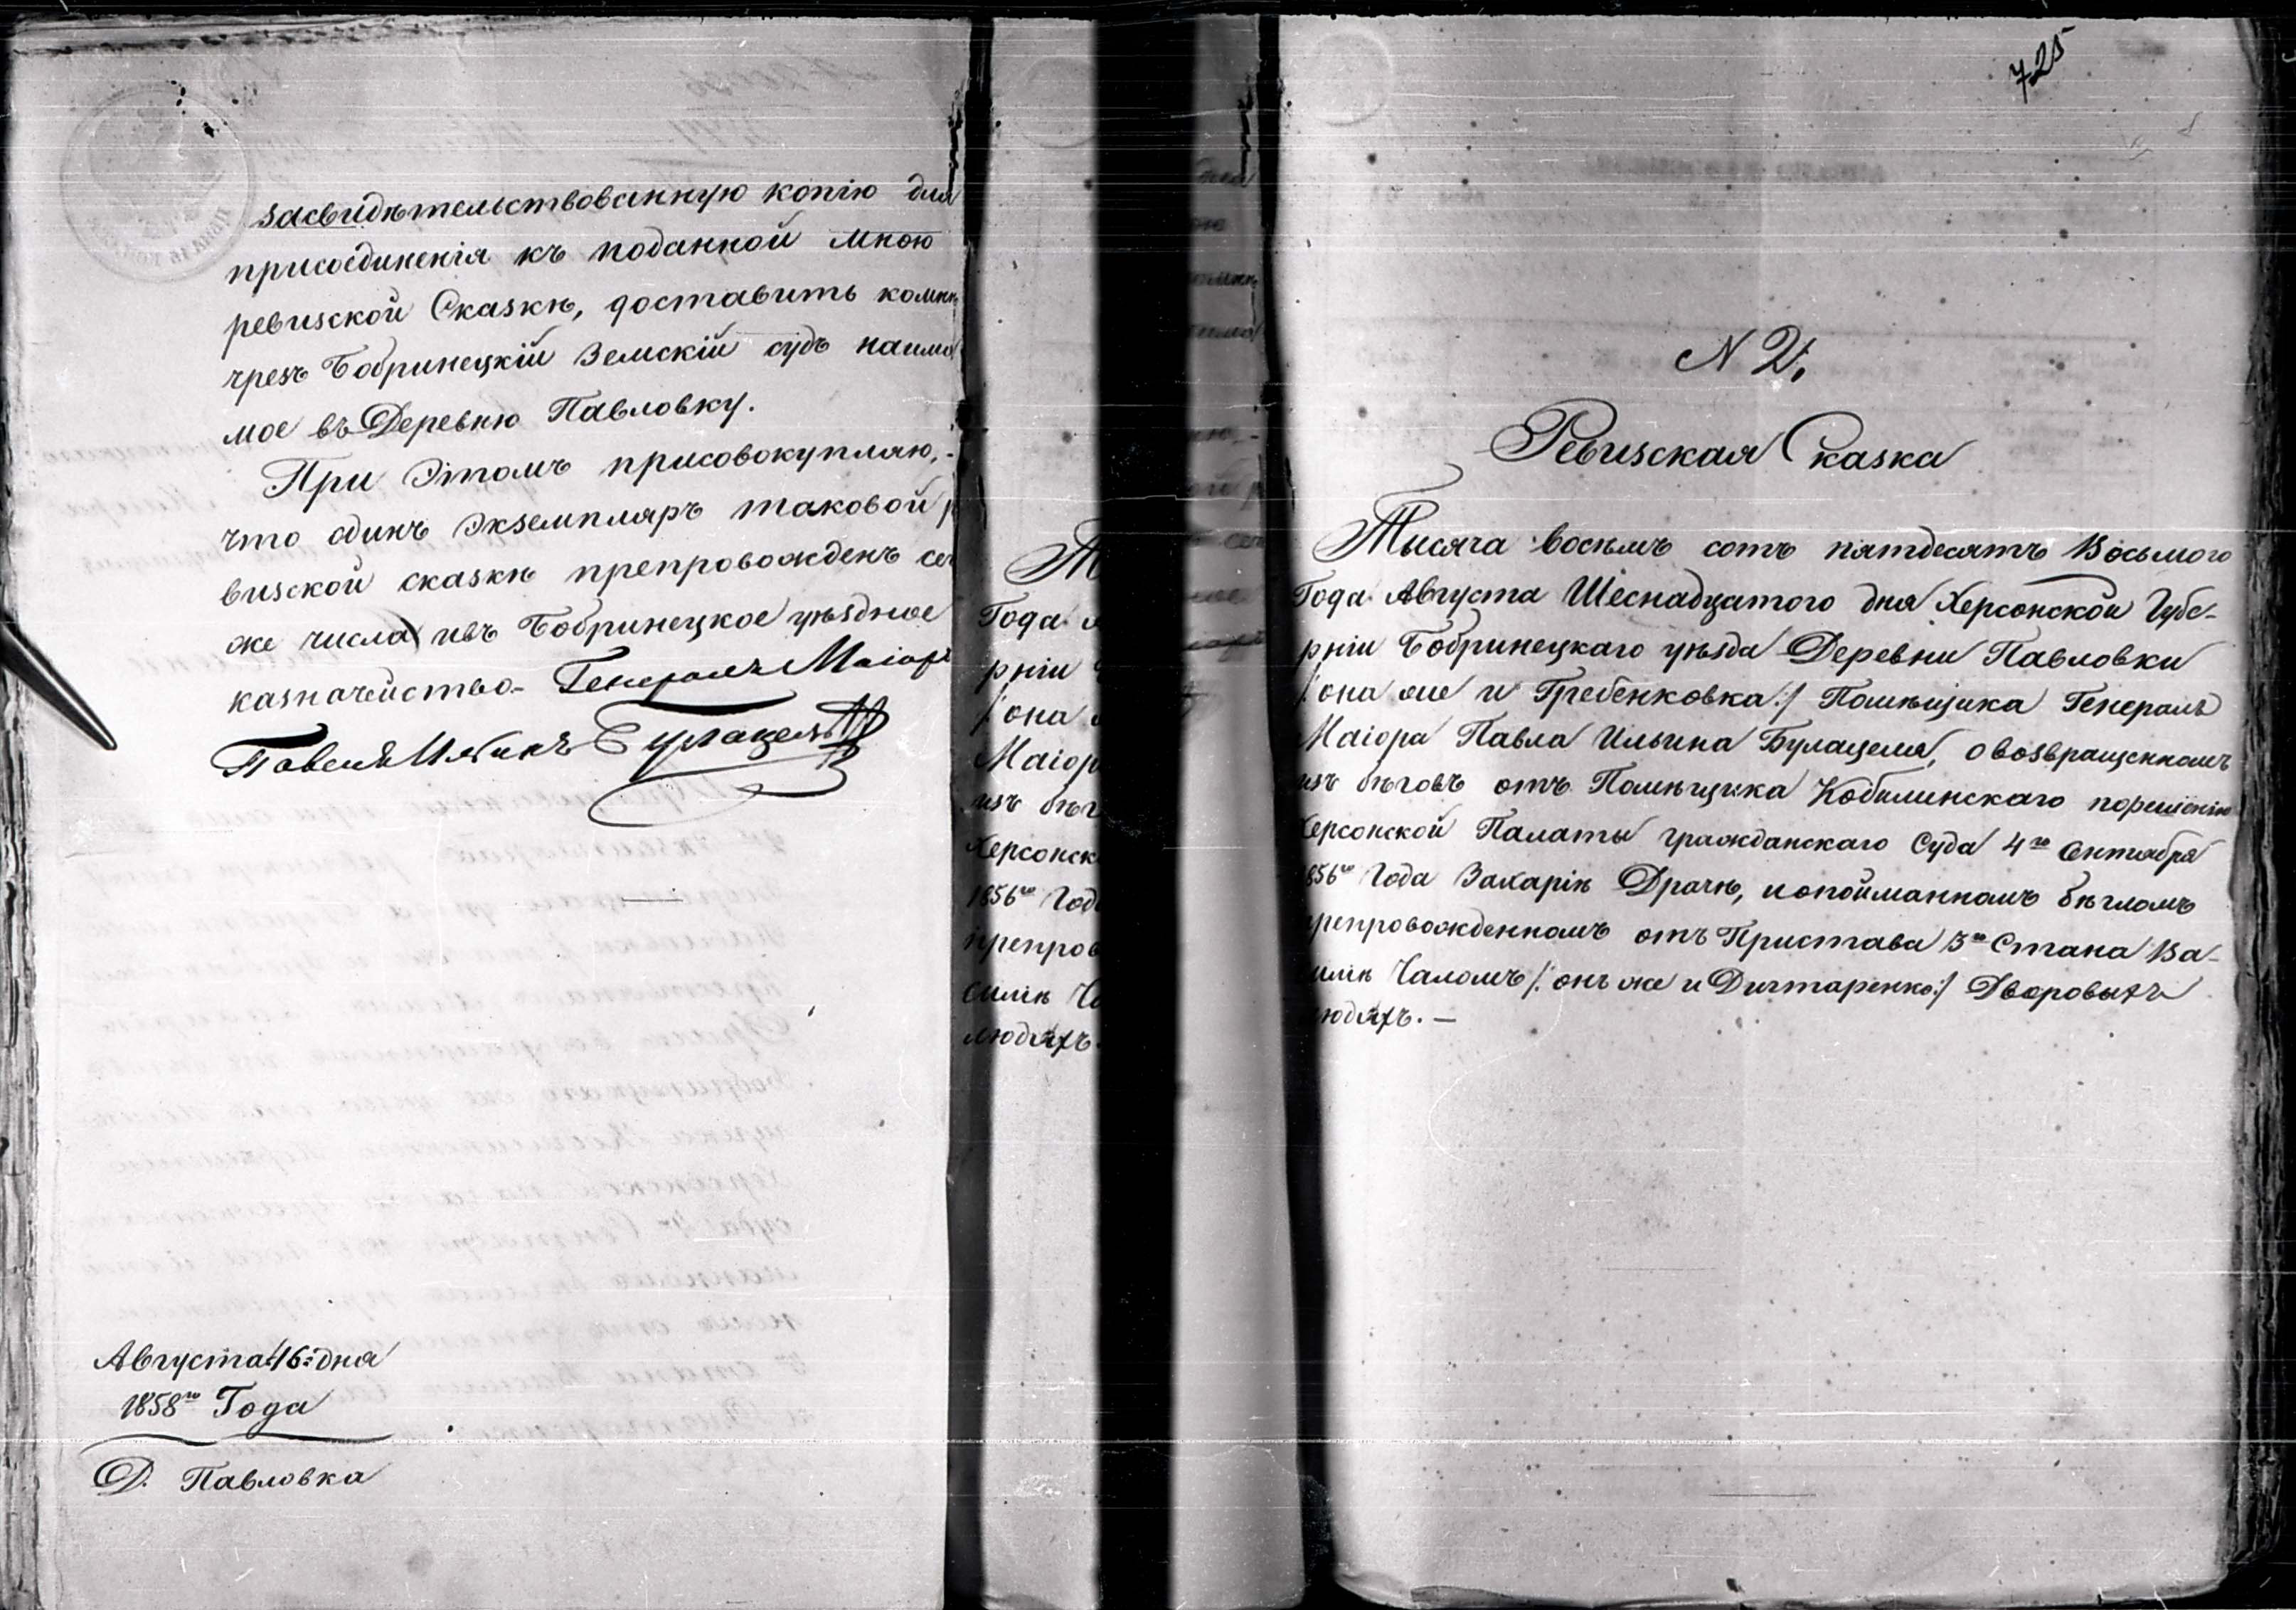 засвидѣтельствованную копію для
присоединенія къ поданной мною
ревизской Сказкѣ, доставить комнѣ
чрезъ Бобринецкій Земскій судъ
мое въ Деревню Павловку.
При Этомъ присовокупляю,
что одинъ Экземпляръ таковой
визской сказкѣ препровожденъ сего
же числа ивъ Бобринецкое уѣздное
казначейство. Генералъ Маіоръ
Павелъ Ильинъ Булацель
Августа 16 дня
1858го Года
Д. Павловка
Т
Года
рніи
/: она
Маіор
изъ бѣг
Херсонск
1856го Год
препров
силіѣ Ча
людяхъ.
725
N 2,
Ревизская Сказка
Тысяча восемъ сотъ пятдесятъ Восьмого
Года Августа Шеснадцатого дня Херсонской Губе-
рніи Бобринецкаго уѣзда Деревни Павловки
/: она же и Гребенковка :/ Помѣщика Генералъ
Маіора Павла Ильина Булацеля, о возвращенномъ
изъ бѣговъ отъ Помѣщика Кобылинскаго порешенію
Херсонской Палаты гражданскаго Суда 4го Октября
1856го Года Захаріѣ Драчѣ, и опойманномъ бѣгломъ
препровожденномъ отъ Пристава 3го Стана Ва-
силіѣ Чаломъ /: онъ же и Дихтаренко :/ Дворовыхъ
людяхъ. —